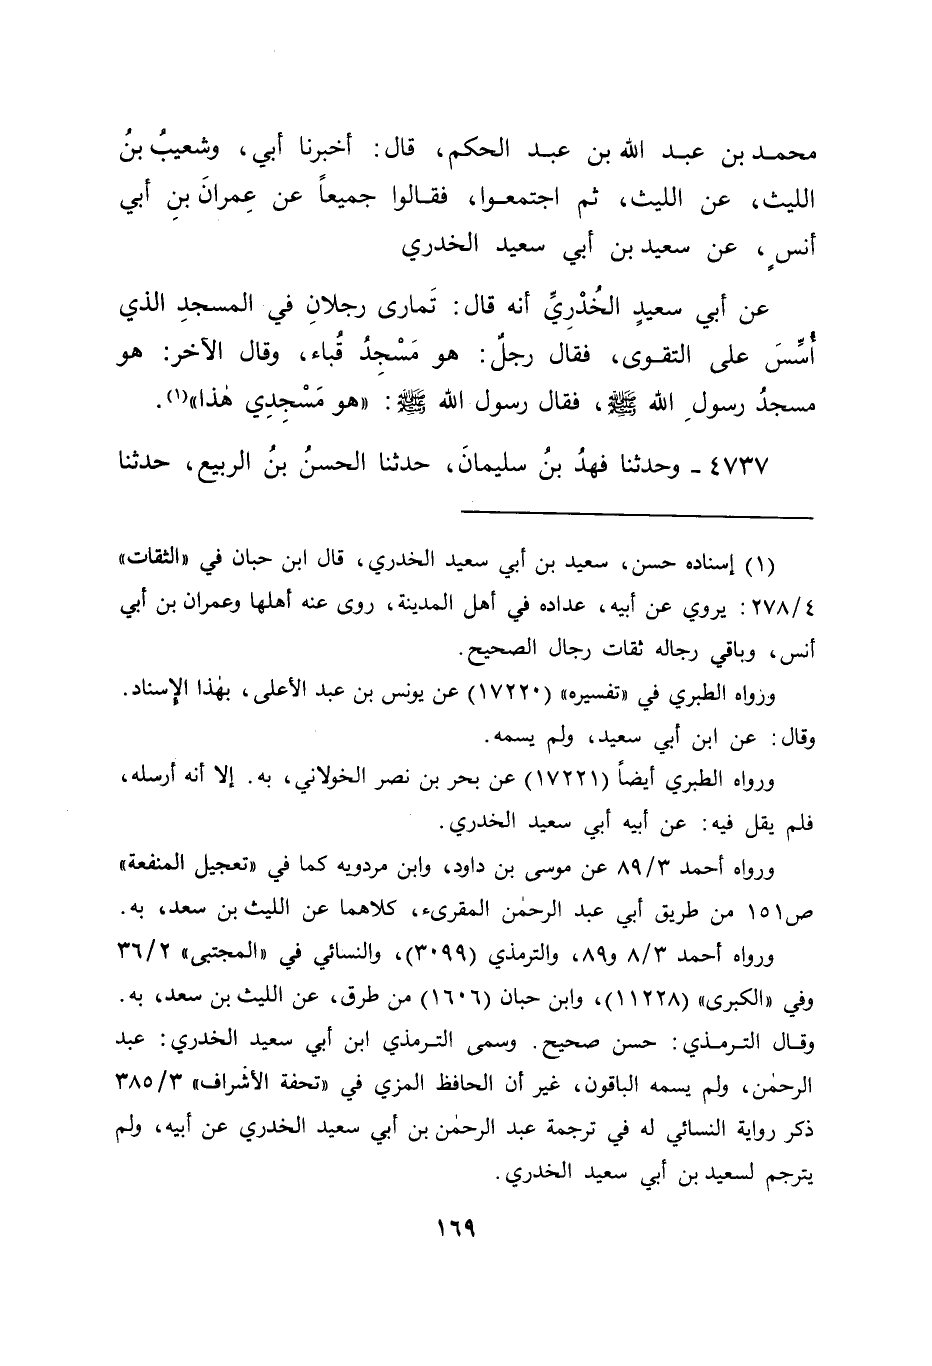 محمد بن عبد الله بن عبد الحكم، قال: أخبرنا أبي، وشعيبُ بنُ
الليث، عن الليث، ثم اجتمعوا، فقالوا جميعاً عن عِمرانَ بنِ أبي
أنسٍ، عن سعيد بن أبي سعيد الخدري
عن أبي سعيدٍ الخُدْرِيِّ أنه قال: تَمارى رجلانِ في المسجدِ الذي
أُسِّسَ على التقوى، فقال رجلٌ: هو مَسْجِدُ قُباء، وقال الآخر: هو
مسجدُ رسولِ الله ﷺ، فقال رسول الله ﷺ: «هو مَسْجِدِي هٰذا»(١).
٤٧٣٧ - وحدثنا فهدُ بنُ سليمانَ، حدثنا الحسنُ بنُ الربيع، حدثنا
(١) إسناده حسن، سعيد بن أبي سعيد الخدري، قال ابن حبان في «الثقات»
٢٧٨/٤: يروي عن أبيه، عداده في أهل المدينة، روى عنه أهلها وعمران بن أبي
أنس، وباقي رجاله ثقات رجال الصحيح.
وزواه الطبري في «تفسيره» (١٧٢٢٠) عن يونس بن عبد الأعلى، بهٰذا الإسناد.
وقال: عن ابن أبي سعيد، ولم يسمه.
ورواه الطبري أيضاً (١٧٢٢١) عن بحر بن نصر الخولاني، به. إلا أنه أرسله،
فلم يقل فيه: عن أبيه أبي سعيد الخدري.
ورواه أحمد ٨٩/٣ عن موسى بن داود، وابن مردويه كما في «تعجيل المنفعة»
ص١٥١ من طريق أبي عبد الرحمٰن المقرىء، كلاهما عن الليث بن سعد، به.
ورواه أحمد ٨/٣ و٨٩، والترمذي (٣٠٩٩)، والنسائي في «المجتبى» ٣٦/٢
وفي «الكبرى» (١١٢٢٨)، وابن حبان (١٦٠٦) من طرق، عن الليث بن سعد، به.
وقال الترمذي: حسن صحيح. وسمى الترمذي ابن أبي سعيد الخدري: عبد
الرحمٰن، ولم يسمه الباقون، غير أن الحافظ المزي في «تحفة الأشراف» ٣٨٥/٣
ذكر رواية النسائي له في ترجمة عبد الرحمٰن بن أبي سعيد الخدري عن أبيه، ولم
يترجم لسعيد بن أبي سعيد الخدري.
١٦٩